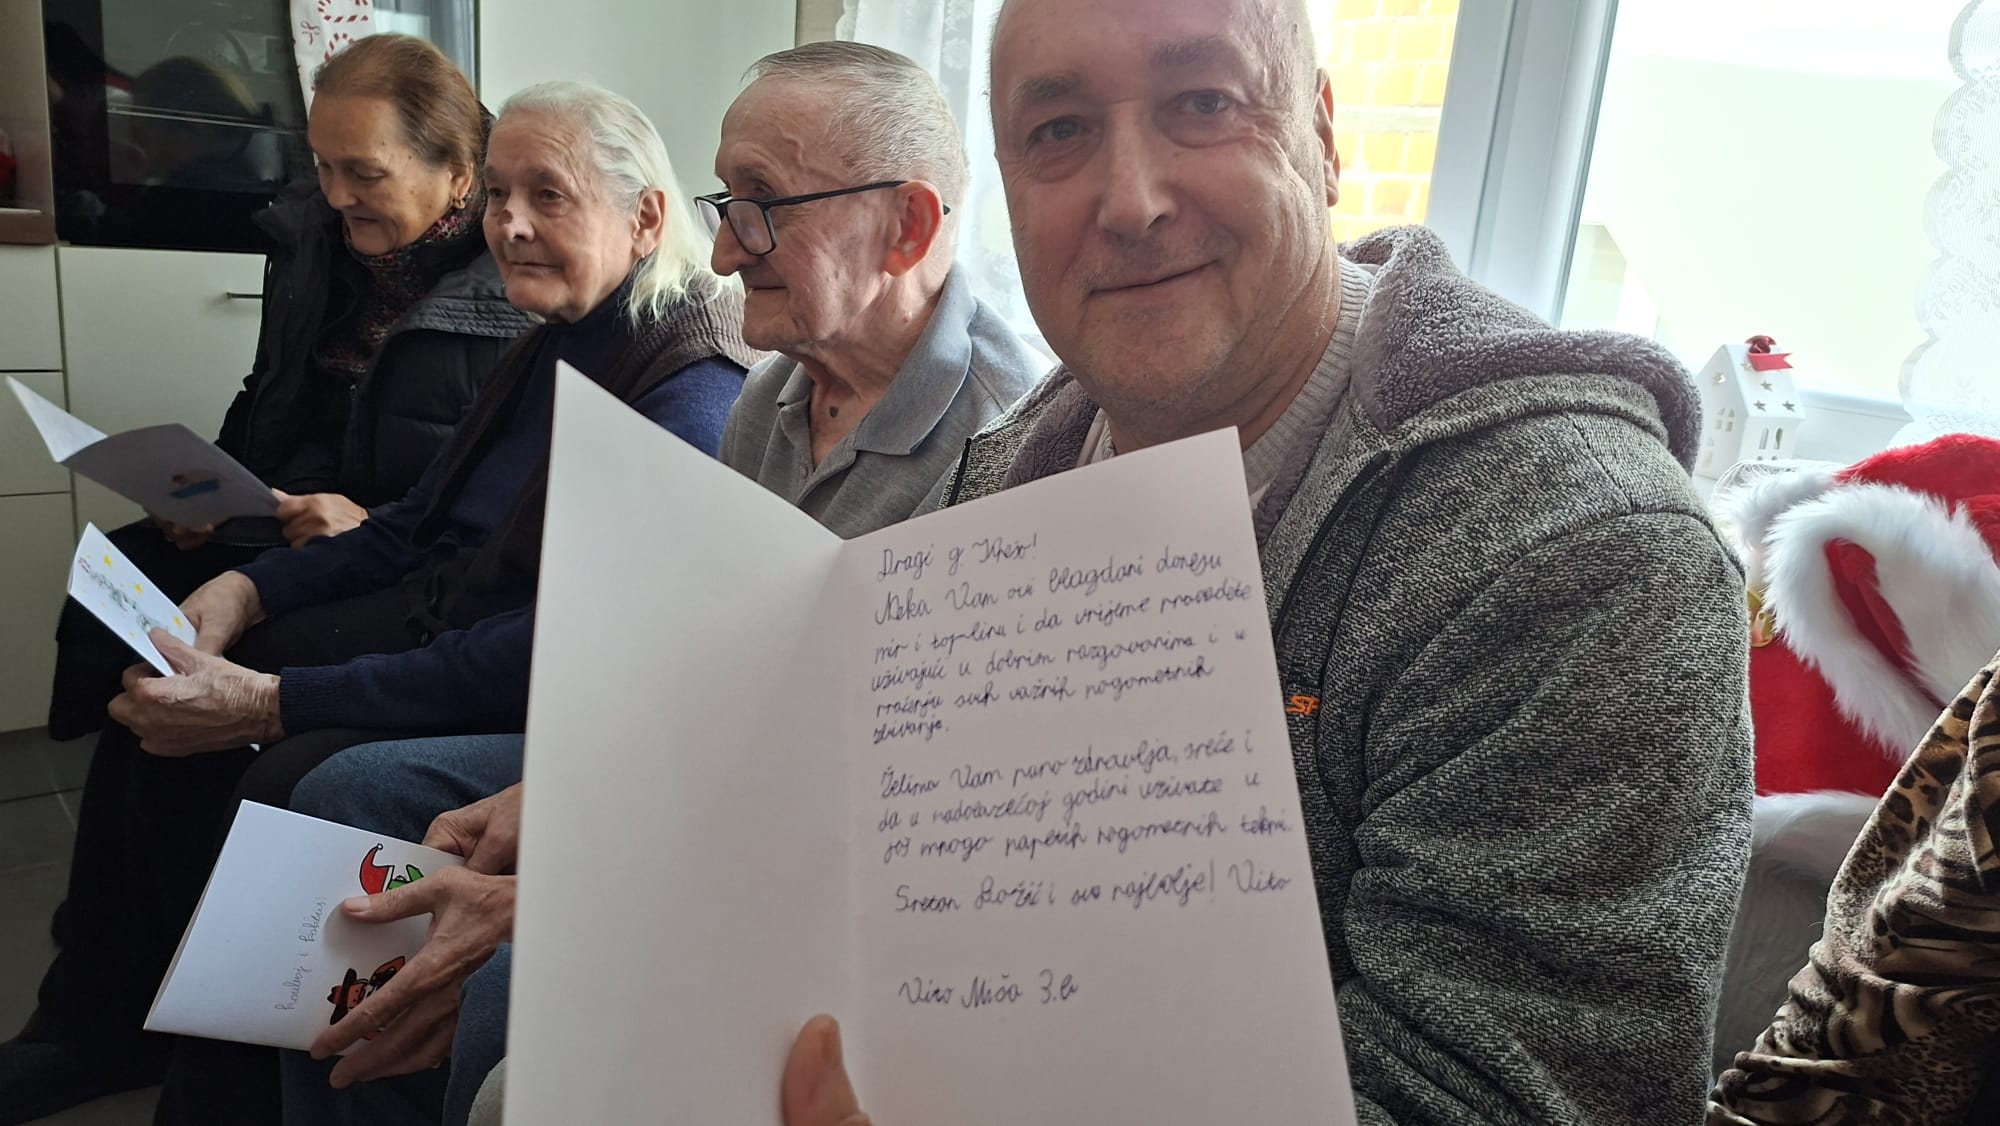 Dragi g. Krešo!
Neka Vam ovi blagdani donesu
mir i toplinu i da vrijeme provodite
uživajući u dobrim razgovorima i u
praćenju svih važnih nogometnih
zbivanja.
Želimo Vam puno zdravlja, sreće i
da u nadolazećoj godini uživate u
još mnogo napetih nogometnih tekmi.
Sretan Božić i sve najbolje! Vito
Vito Miša 3.b
kauboj i kaktus!
SF